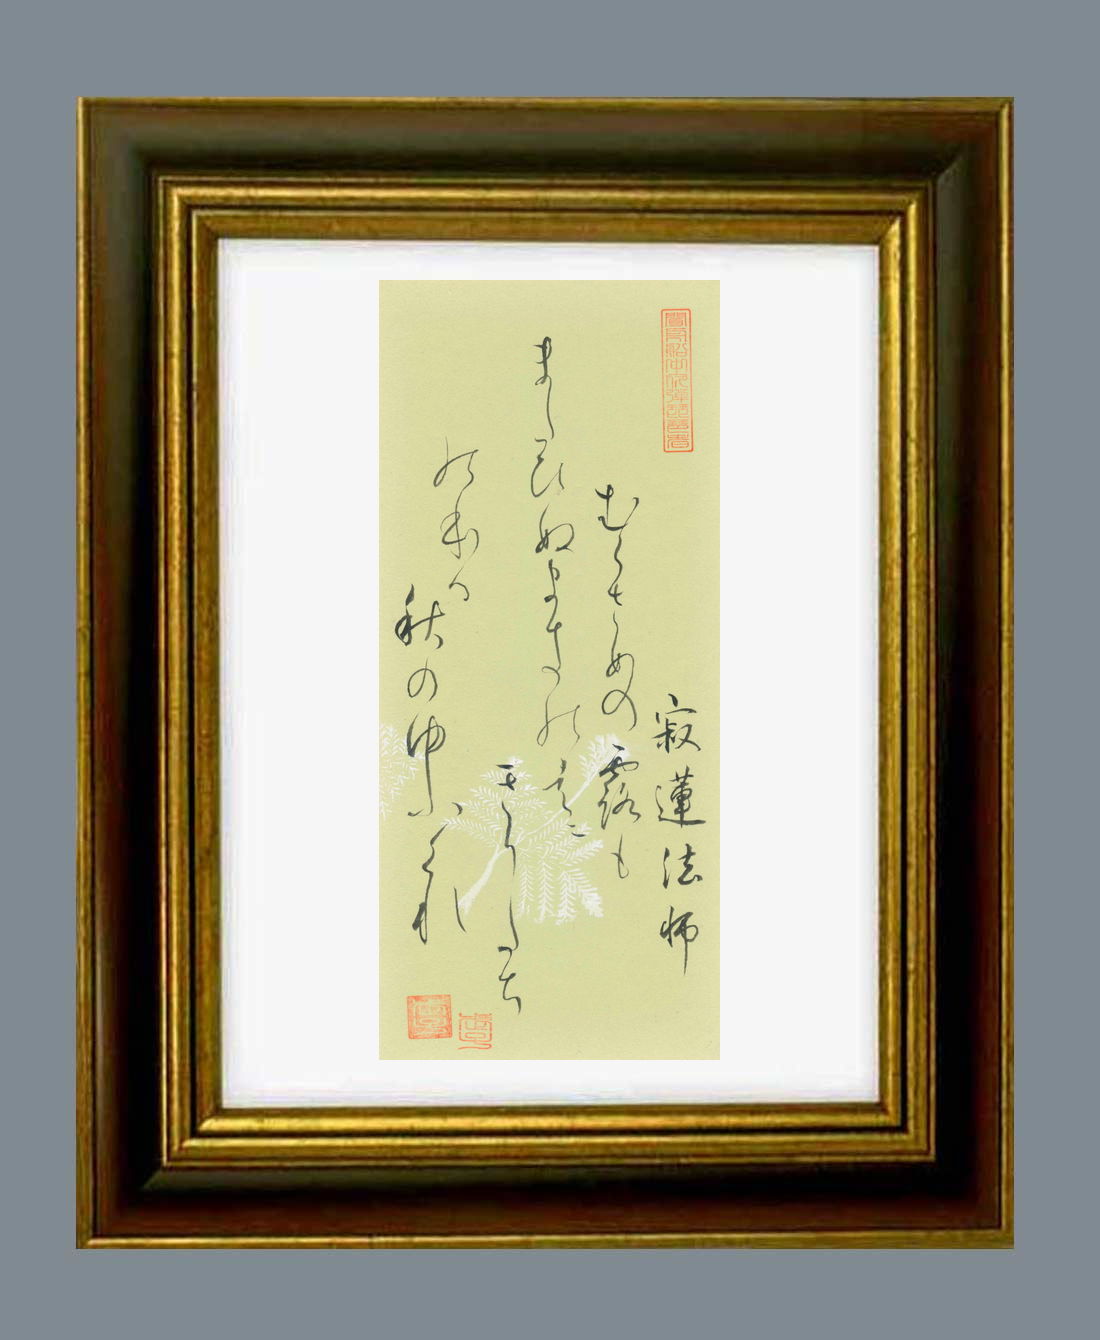 寂蓮法師
むらさめの露も
またひぬまきのはに
きりたち
のほる
秋のゆふくれ